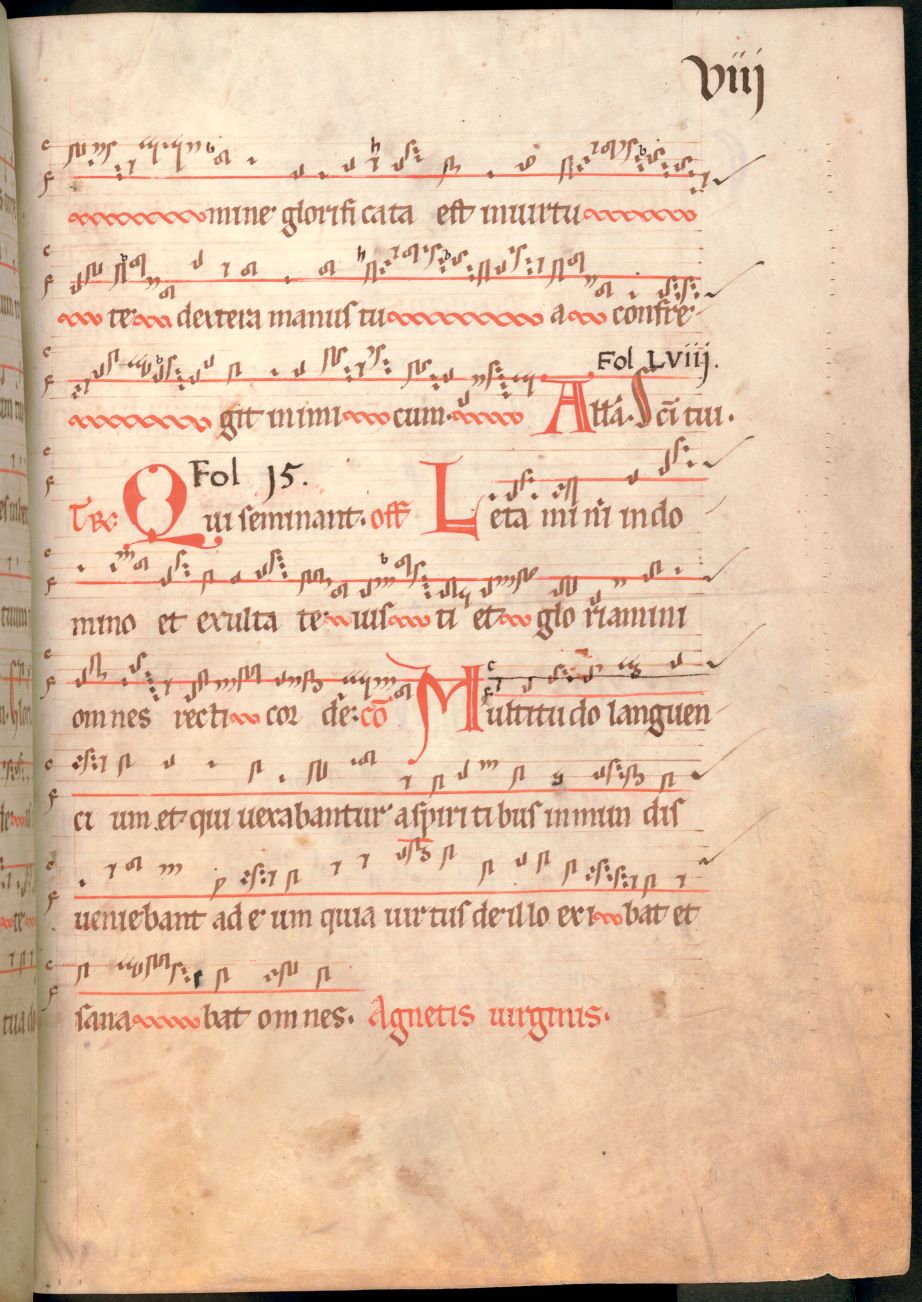 viij
mine glorifi cata est inuirtu
te dextera manus tu a confre
Fol LViij.
git inimi cum. A llã. Scĩ tui.
Fol 15.
Qui seminant. off Leta mĩ nĩ indo
mino et exulta te uis ti et glo riamini
omnes recti cor de. cõ Multitu do languen
ci um et qui uexabantur aspiri ti bus inmun dis
ueniebant ad e um quia uirtus de illo exi bat et
sana bat omnes. Agnetis uirginis.